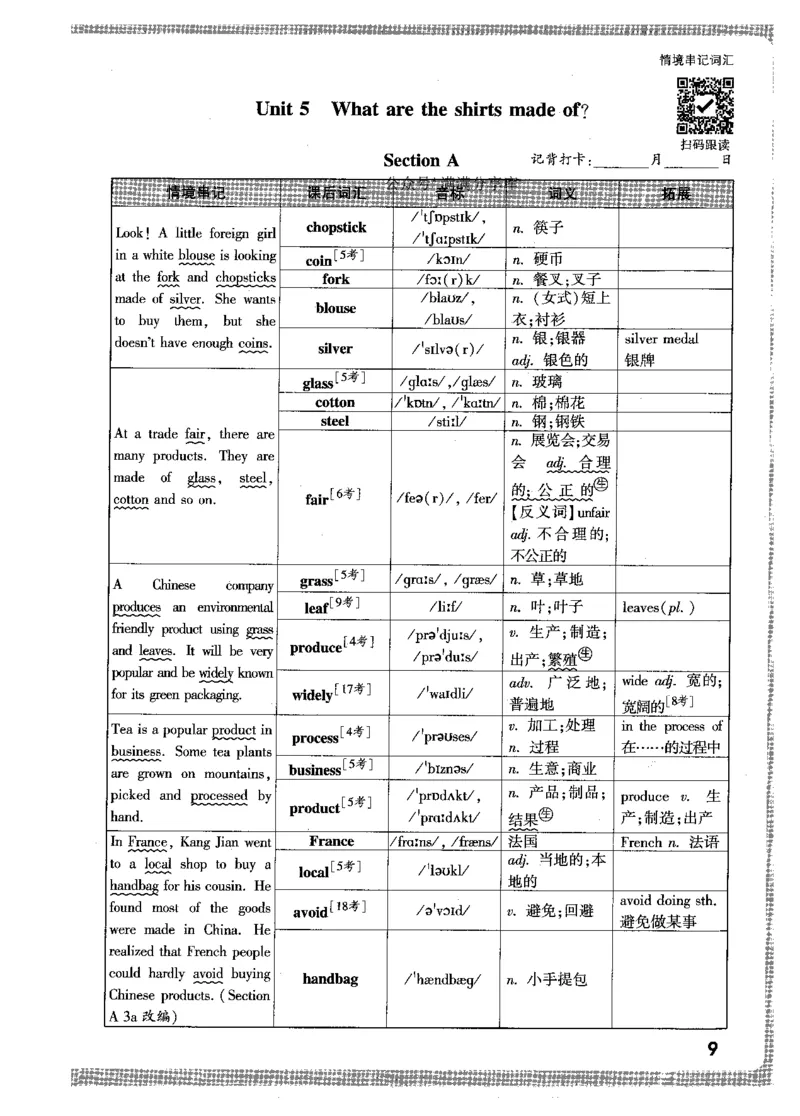 情境串记词汇
Unit 5 What are the shirts made of?
扫码跟读
Section A 记背打卡：______月______日
情境串记 课后词汇 音标 词义 拓展
Look! A little foreign girl
in a white blouse is looking
at the fork and chopsticks
made of silver. She wants
to buy them, but she
doesn't have enough coins.
chopstick /ˈtʃɒpstɪk/,
/ˈtʃɑːpstɪk/ n. 筷子
coin[5考] /kɔɪn/ n. 硬币
fork /fɔː(r)k/ n. 餐叉;叉子
blouse /blaʊz/,
/blaʊs/ n. (女式)短上
衣;衬衫
silver /ˈsɪlvə(r)/ n. 银;银器
adj. 银色的
silver medal
银牌
At a trade fair, there are
many products. They are
made of glass, steel,
cotton and so on.
glass[5考] /ɡlɑːs/,/ɡlæs/ n. 玻璃
cotton /ˈkɒtn/, /ˈkɑːtn/ n. 棉;棉花
steel /stiːl/ n. 钢;钢铁
fair[6考] /feə(r)/, /fer/ n. 展览会;交易
会 adj. 合理
的;公正的㊛
【反义词】unfair
adj. 不合理的;
不公正的
A Chinese company
produces an environmental
friendly product using grass
and leaves. It will be very
popular and be widely known
for its green packaging.
grass[5考] /ɡrɑːs/, /ɡræs/ n. 草;草地
leaf[9考] /liːf/ n. 叶;叶子 leaves(pl. )
produce[4考] /prəˈdjuːs/,
/prəˈduːs/ v. 生产;制造;
出产;繁殖生
widely[17考] /ˈwaɪdli/ adv. 广泛地;
普遍地
wide adj. 宽的;
宽阔的[8考]
Tea is a popular product in
business. Some tea plants
are grown on mountains,
picked and processed by
hand.
process[4考] /ˈprəʊses/ v. 加工;处理
n. 过程
in the process of
在……的过程中
business[5考] /ˈbɪznəs/ n. 生意;商业
product[5考] /ˈprɒdʌkt/,
/ˈprɑːdʌkt/ n. 产品;制品;
结果生
produce v. 生
产;制造;出产
In France, Kang Jian went
to a local shop to buy a
handbag for his cousin. He
found most of the goods
were made in China. He
realized that French people
could hardly avoid buying
Chinese products. (Section
A 3a 改编)
France /frɑːns/, /fræns/ 法国 French n. 法语
local[5考] /ˈləʊkl/ adj. 当地的;本
地的
avoid[18考] /əˈvɔɪd/ v. 避免;回避 avoid doing sth.
避免做某事
handbag /ˈhændbæɡ/ n. 小手提包
9